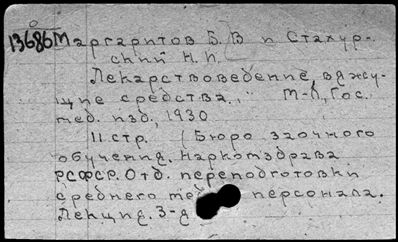 13686 Маргаритов Б. В и Стахур-
ский Н. И.
Лекарствоведение, вяжу-
щие средства. М-Л, Гос.
мед. изд., 1930
11.стр. (Бюро заочного
обучения. Наркомздрава
РСФСР. Отд. переподготовки
среднего персонала.
Лекция. 3-я